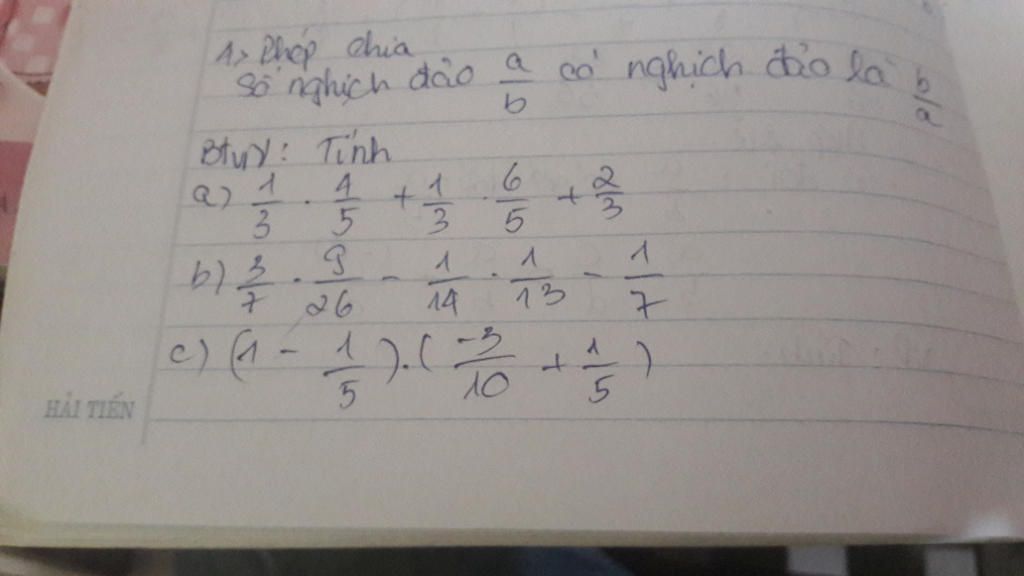 1, Phép chia
Số nghịch đảo a/b có nghịch đảo là b/a
Tính
a) 1/3 . 4/5 + 1/3 . 6/5 + 2/3
b) 3/7 . 9/26 - 1/14 . 1/13 - 1/7
c) (1 - 1/5).(-3/10 + 1/5)
HẢI TIẾN